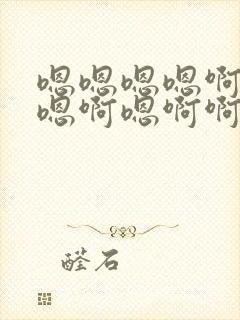 嗯嗯嗯嗯啊
嗯啊嗯啊啊
醛石